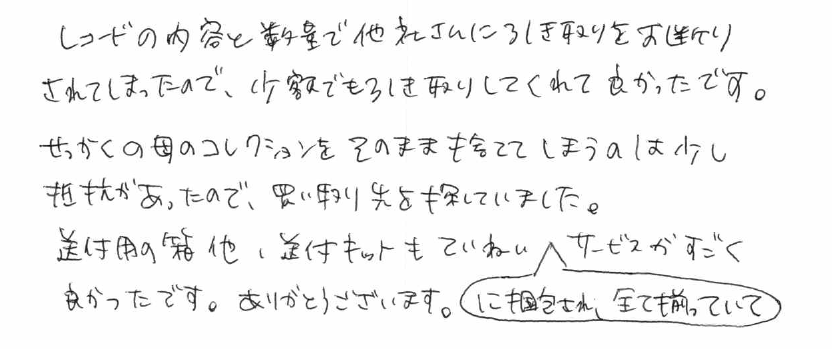 レコードの内容と数量で他社さんに引き取りをお断り
されてしまったので、少額でも引き取りしてくれて良かったです。
せっかくの母のコレクションをそのまま捨ててしまうのは少し
抵抗があったので、買い取り先を探していました。
送付用の箱他、送付キットもていねい サービスがすごく
良かったです。ありがとうございます。に梱包され、全て揃っていて